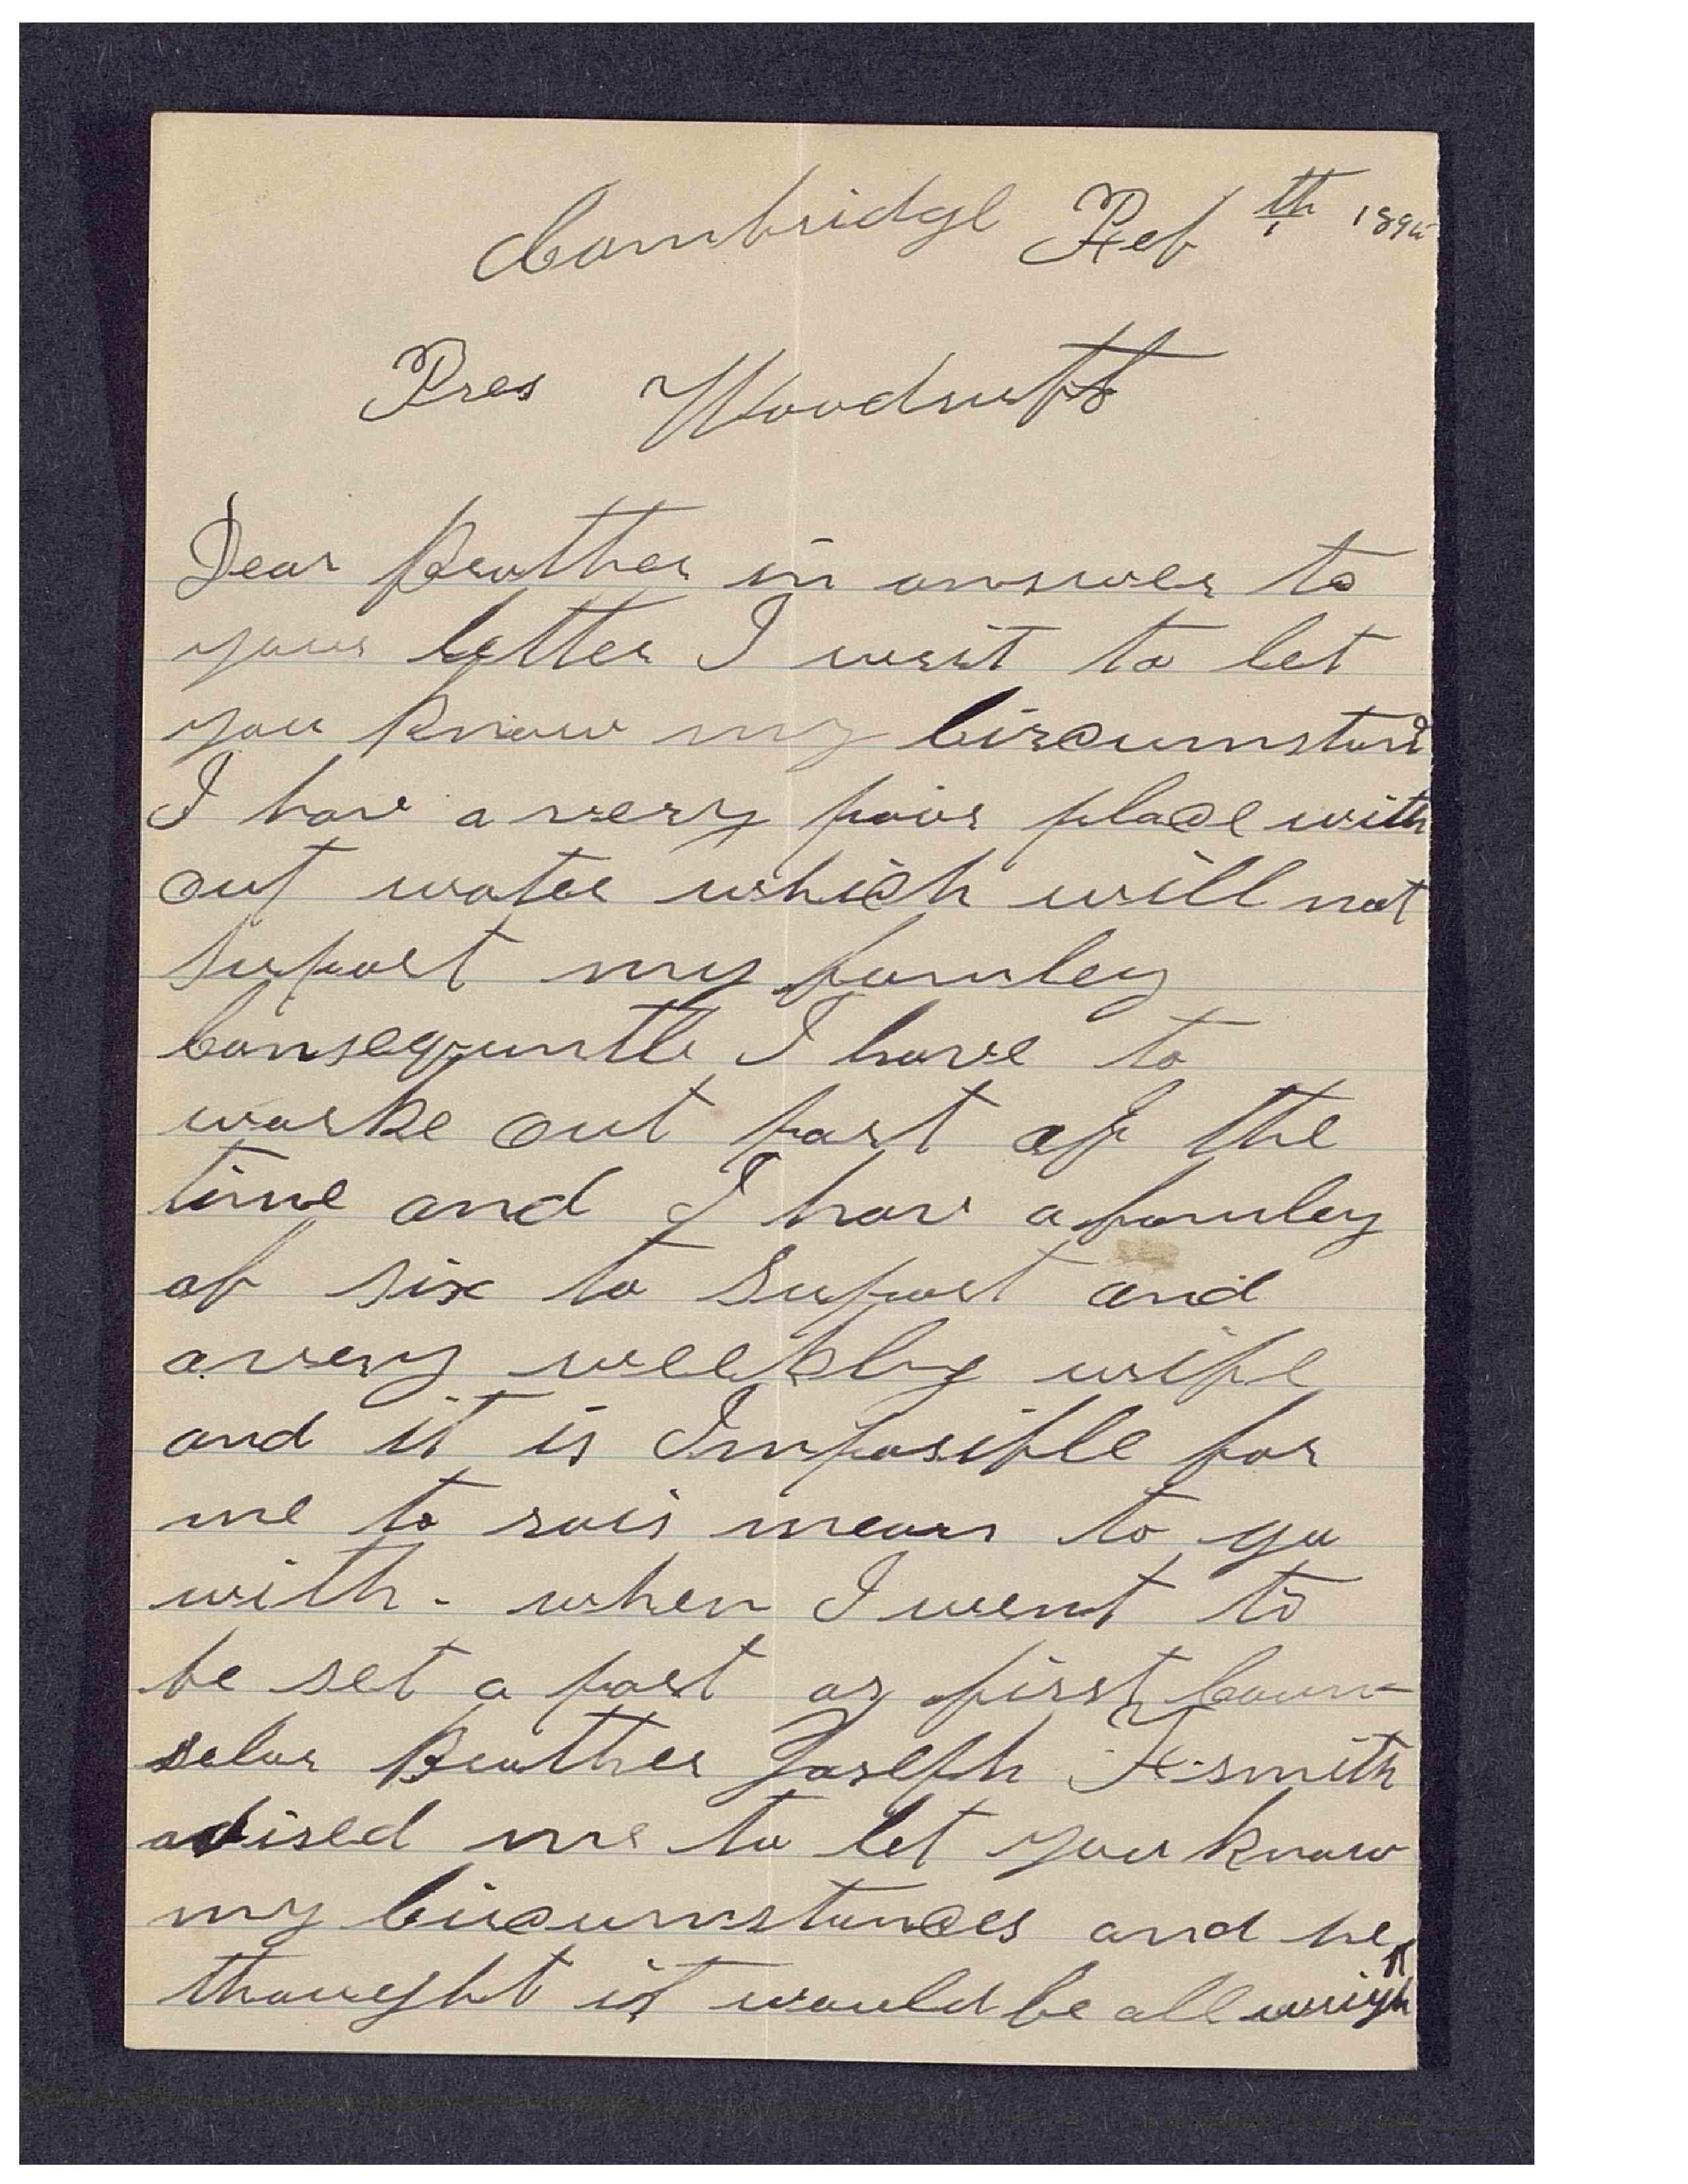 Cambridge Feb th
Pres Woodruff
Dear Brother in answer to
your letter I writ to let
you know my Circumstan
I hav a very poor place with
out water which will not
suport my famley
Consequntle I have to
worke out part of the
time and I hav a famley
of six to Suport and
a very weekly wife
and it is Imposible for
me to rais means to go
with - when I went to
be set a part as first Coun-
selor Brother Joseph F Smith
adised me to let you know
my Circumstances and he
thought it would be all wrigh